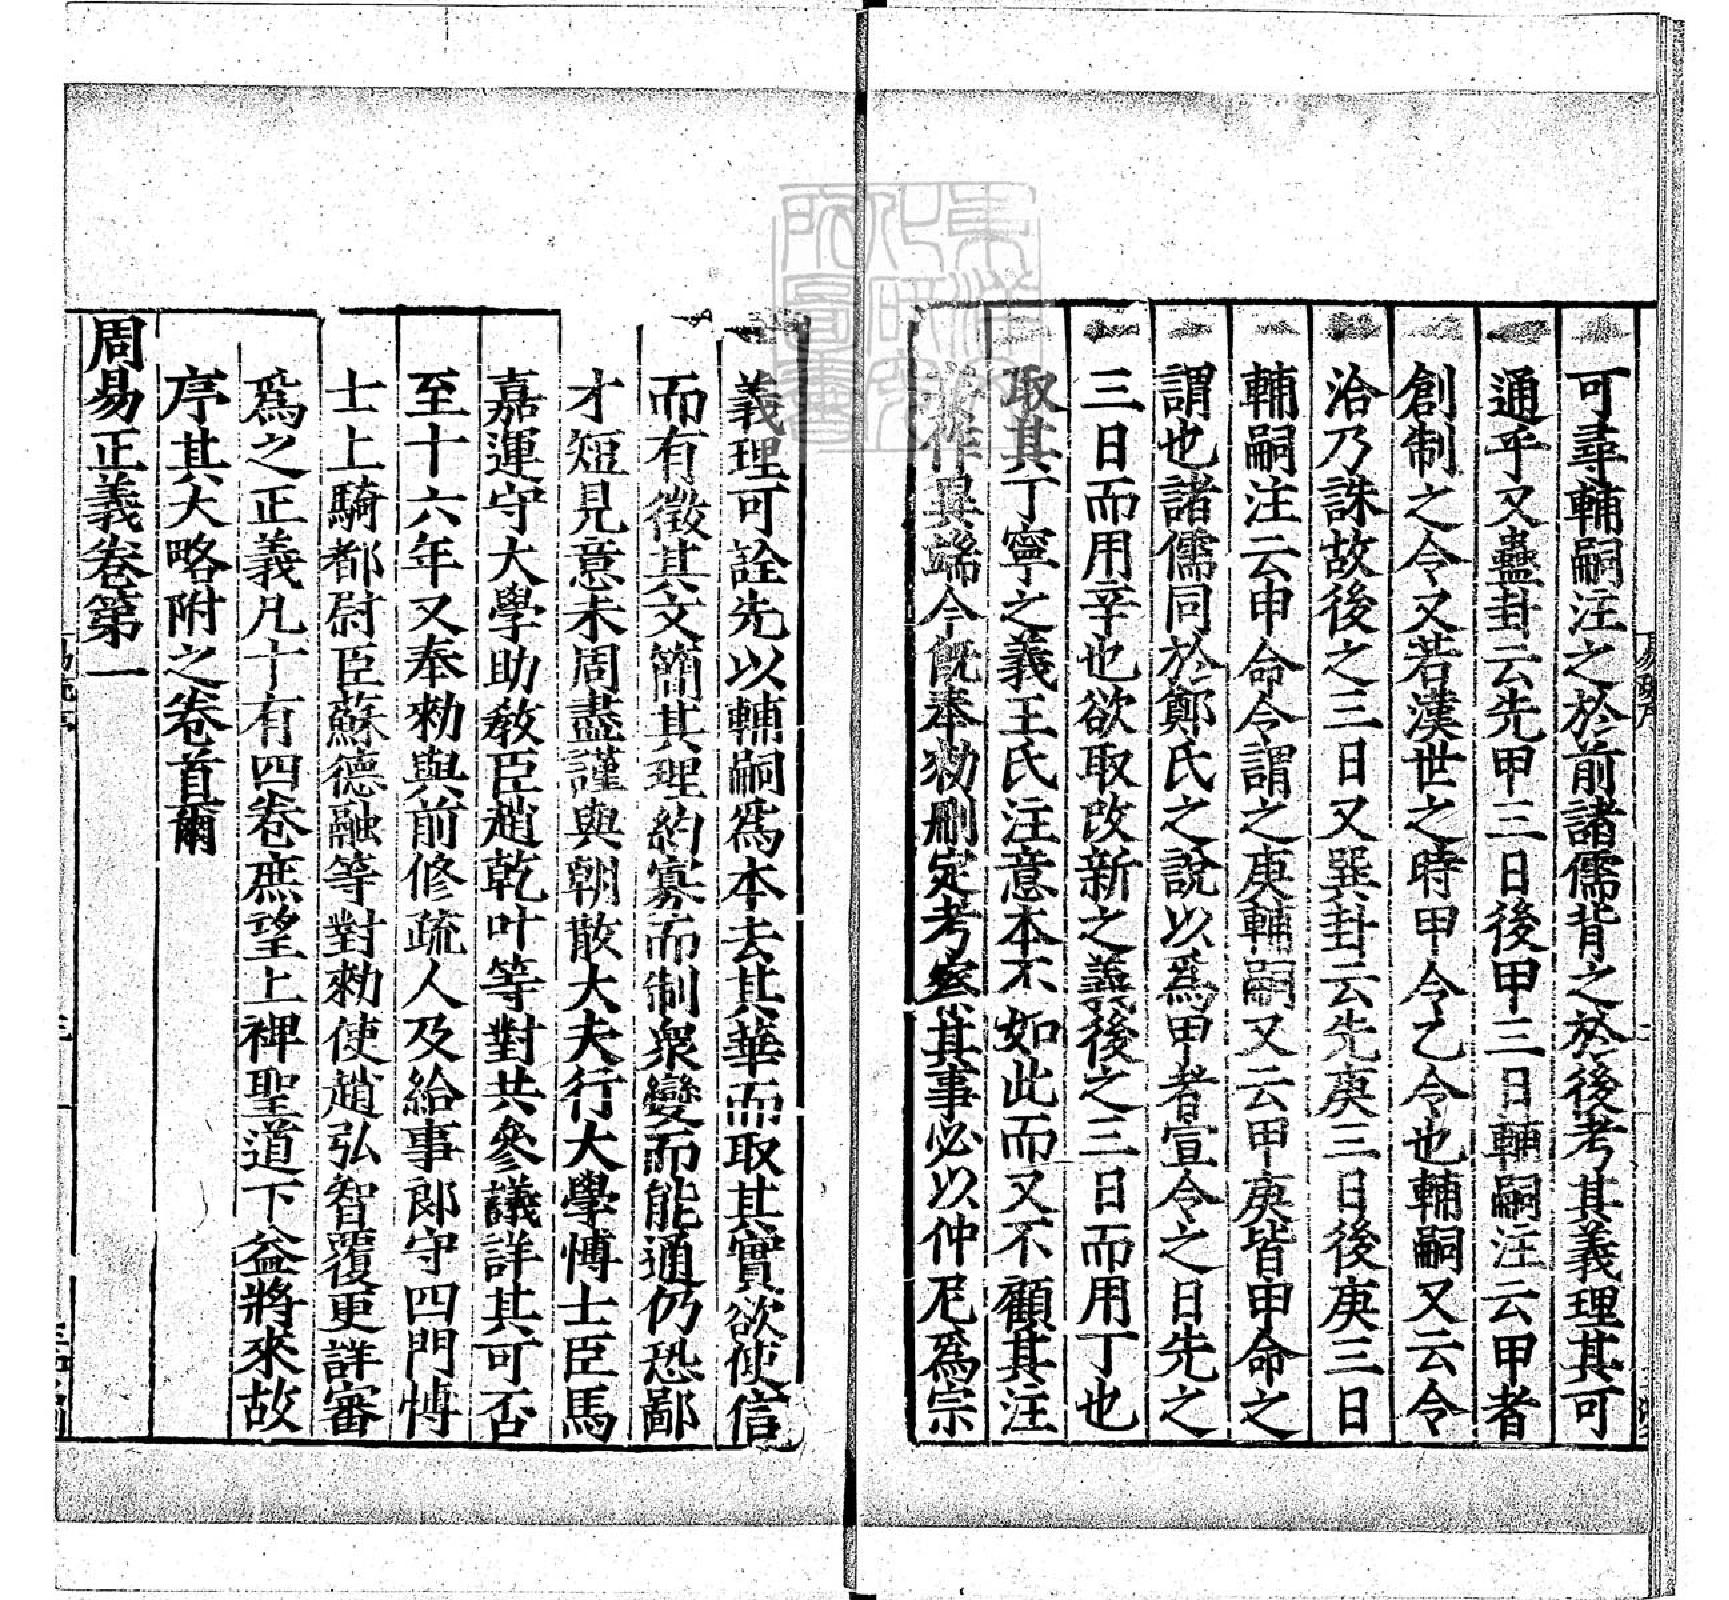 可尋輔嗣注之於前諸儒背之於後考其義理其可
通乎又蠱卦云先甲三日後甲三日輔嗣注云甲者
創制之令又若漢世之時甲令乙令也輔嗣又云令
洽乃誅故後之三日又巽卦云先庚三日後庚三日
輔嗣注云申命令謂之庚輔嗣又云甲庚皆申命之
謂也諸儒同於鄭氏之說以爲甲者宣令之日先之
三日而用辛也欲取改新之義後之三日而用丁也
取其丁寧之義王氏注意本不如此而又不顧其注
作異端今既奉勑刪定考察其事必以仲尼爲宗
義理可詮先以輔嗣爲本去其華而取其實欲使信
而有徵其文簡其理約寡而制衆變而能通仍恐鄙
才短見意未周盡謹與朝散大夫行大學博士臣馬
嘉運守大學助教臣趙乾叶等對共參議詳其可否
至十六年又奉勑與前修疏人及給事郎守四門博
士上騎都尉臣蘇德融等對勑使趙弘智覆更詳審
爲之正義凡十有四卷庶望上裨聖道下益將來故
序其大略附之卷首爾
周易正義卷第一